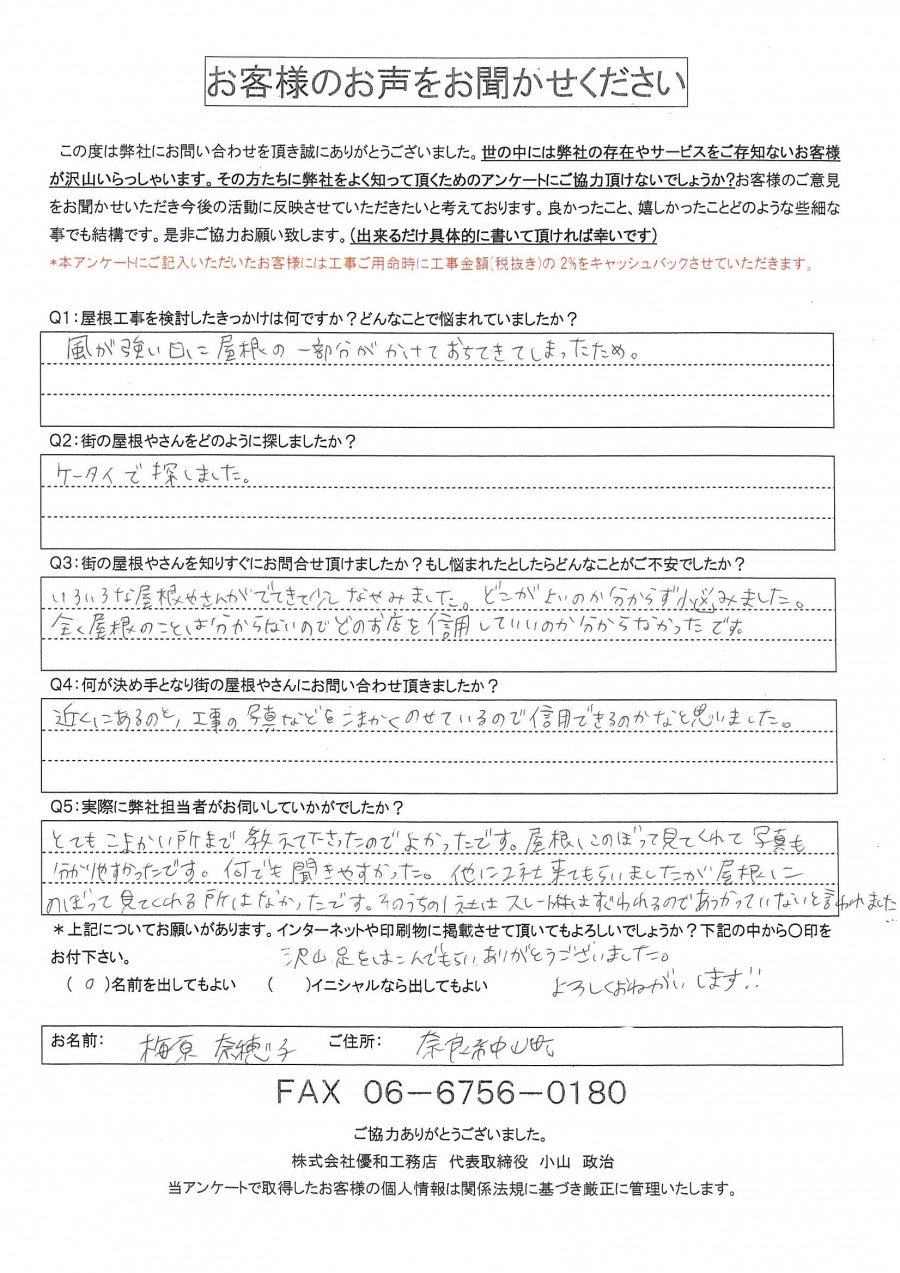 お客様のお声をお聞かせください
この度は弊社にお問い合わせを頂き誠にありがとうございました。世の中には弊社の存在やサービスをご存知ないお客様
が沢山いらっしゃいます。その方たちに弊社をよく知って頂くためのアンケートにご協力頂けないでしょうか?お客様のご意見
をお聞かせいただき今後の活動に反映させていただきたいと考えております。良かったこと、嬉しかったことどのような些細な
事でも結構です。是非ご協力お願い致します。(出来るだけ具体的に書いて頂ければ幸いです)
*本アンケートにご記入いただいたお客様には工事ご用命時に工事金額(税抜き)の 2%をキャッシュバックさせていただきます。
Q1:屋根工事を検討したきっかけは何ですか?どんなことで悩まれていましたか?
風が強い日に屋根の一部分がかけておちてきてしまったため。
Q2:街の屋根やさんをどのように探しましたか?
ケータイで探しました。
Q3:街の屋根やさんを知りすぐにお問合せ頂けましたか?もし悩まれたとしたらどんなことがご不安でしたか?
いろいろな屋根やさんがでてきて少しなやみました。どこがよいのか分からず悩みました。
全く屋根のことは分からないのでどのお店を信用していいのか分からなかったです。
Q4:何が決め手となり街の屋根やさんにお問い合わせ頂きましたか?
近くにあるのと,工事の写真などをこまかくのせているので信用できるのかなと思いました。
Q5:実際に弊社担当者がお伺いしていかがでしたか?
とてもこまかい所まで教えて下さったのでよかったです。屋根にのぼって見てくれて写真も
分かりやすかったです。何でも聞きやすかった。他に2社来てもらいましたが屋根に
のぼって見てくれる所はなかったです。そのうちの1社はスレート株はすぐわれるのであつかっていないと言われました
*上記についてお願いがあります。インターネットや印刷物に掲載させて頂いてもよろしいでしょうか?下記の中から〇印を
お付下さい。
沢山足をはこんでもらいありがとうございました。
(○)名前を出してもよい ( )イニシャルなら出してもよい
よろしくおねがいします!!
お名前: 梅原 奈穂子 ご住所: 奈良市中山町
FAX 06-6756-0180
ご協力ありがとうございました。
株式会社優和工務店 代表取締役 小山 政治
当アンケートで取得したお客様の個人情報は関係法規に基づき厳正に管理いたします。